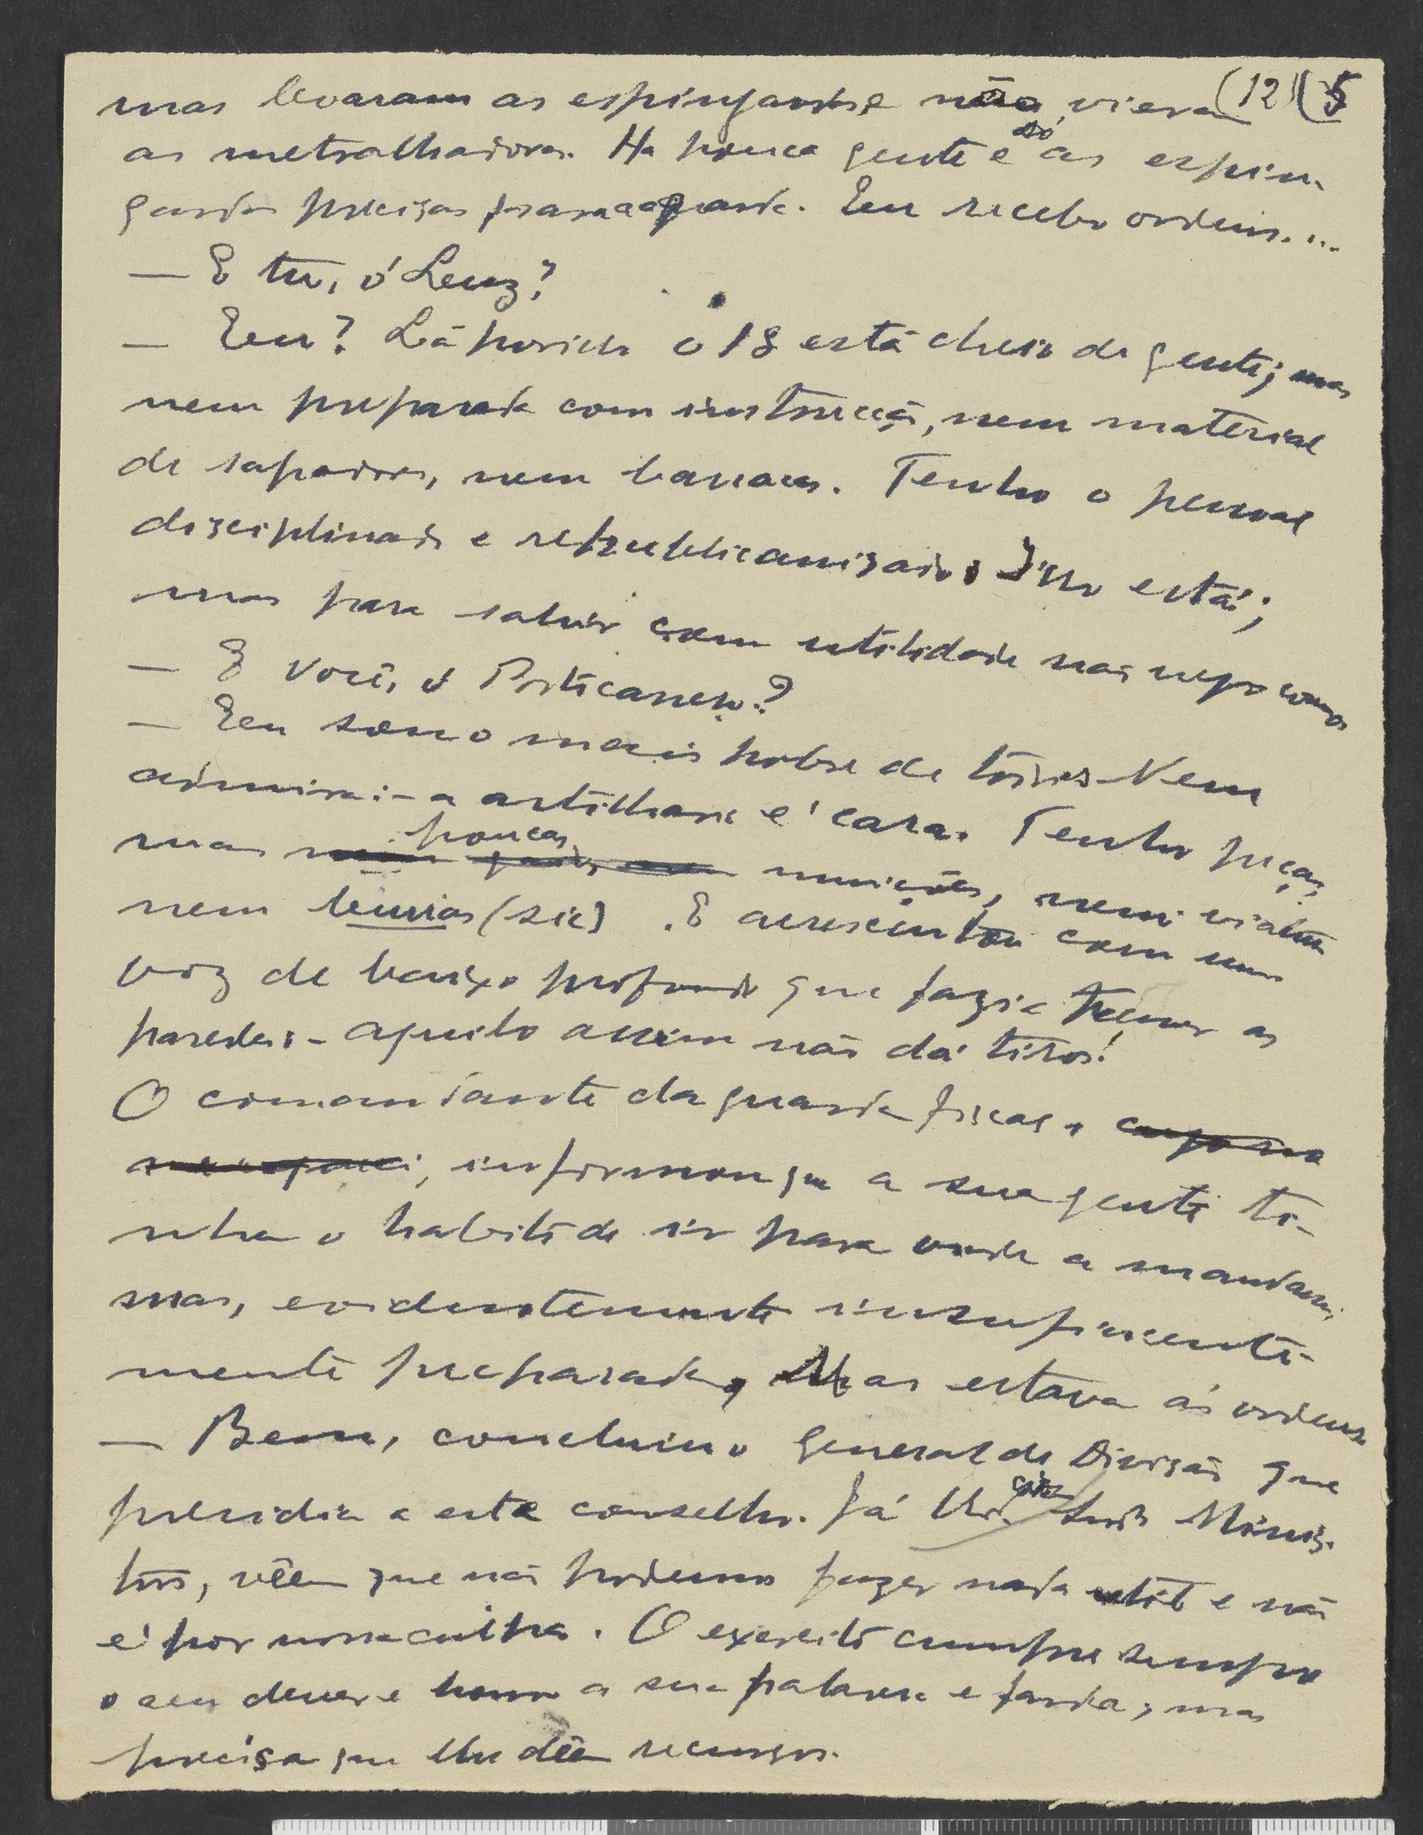 mas levaram as espingardas e não vieram (12) (5
as metralhadoras. Ha pouca gente e só as espin-
gardas precisas para a guarda. Eu recebo ordens....
— E tu, ó Luz?
— Eu? Lá por isso o 18 está cheio de gente; mas
nem preparada com instrucção, nem material
de sapadores, nem barracas. Tenho o pessoal
disciplinado e republicanizado. Isso está;
mas para sahir com utilidade não
— E você, ó
— Eu sou o mais pobre de todos. Nem
admira: - a artilharia é cara. Tenho peças,
mas poucas munições, nem
nem (sic). E acrescentou com uma
voz de baixo profundo que fazia tremer as
paredes: - aquilo assim não dá tiros!
O comandante da guarda fiscal,
informou que a sua gente ti-
nha o habito de ir para onde a mandam,
mas, evidentemente insuficiente-
mente preparada, Mas estava ás ordens.
— Bem, concluiu o General de Divisão que
presidia a este conselho. Já Minis-
tros, vêem que não podemos fazer nada util e não
é por nossa culpa. O exercito cumpre sempre
o seu dever e honra a sua palavra e farda, mas
precisa que lhe dêem recursos.